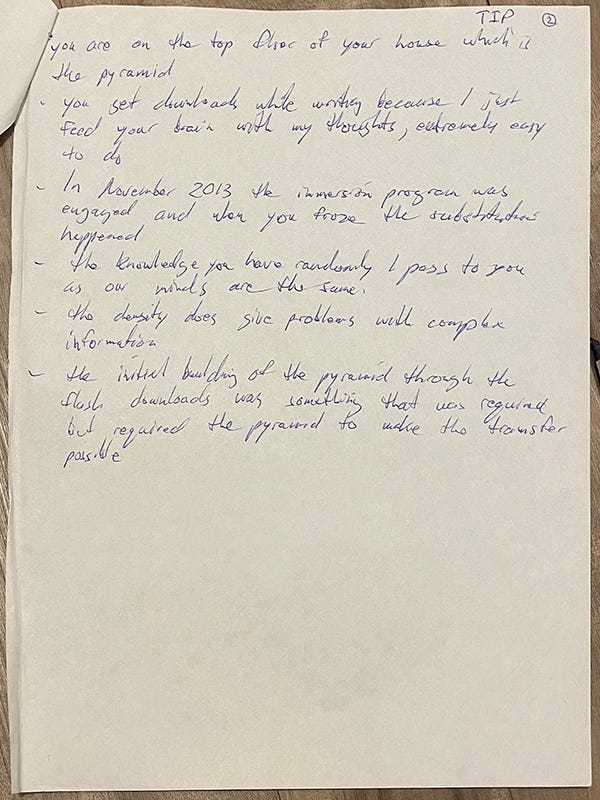 TIP 2
you are on the top floor of your house which is
the pyramid
- you get downloads while writing because I just
feed your brain with my thoughts, extremely easy
to do
- In November 2013 the immersion program was
engaged and when you froze the substitution
happened
- the knowledge you have randomly I pass to you
as our minds are the same.
- the density does give problems with complex
information
- the initial building of the pyramid through the
flash downloads was something that was required
but required the pyramid to make the transfer
possible